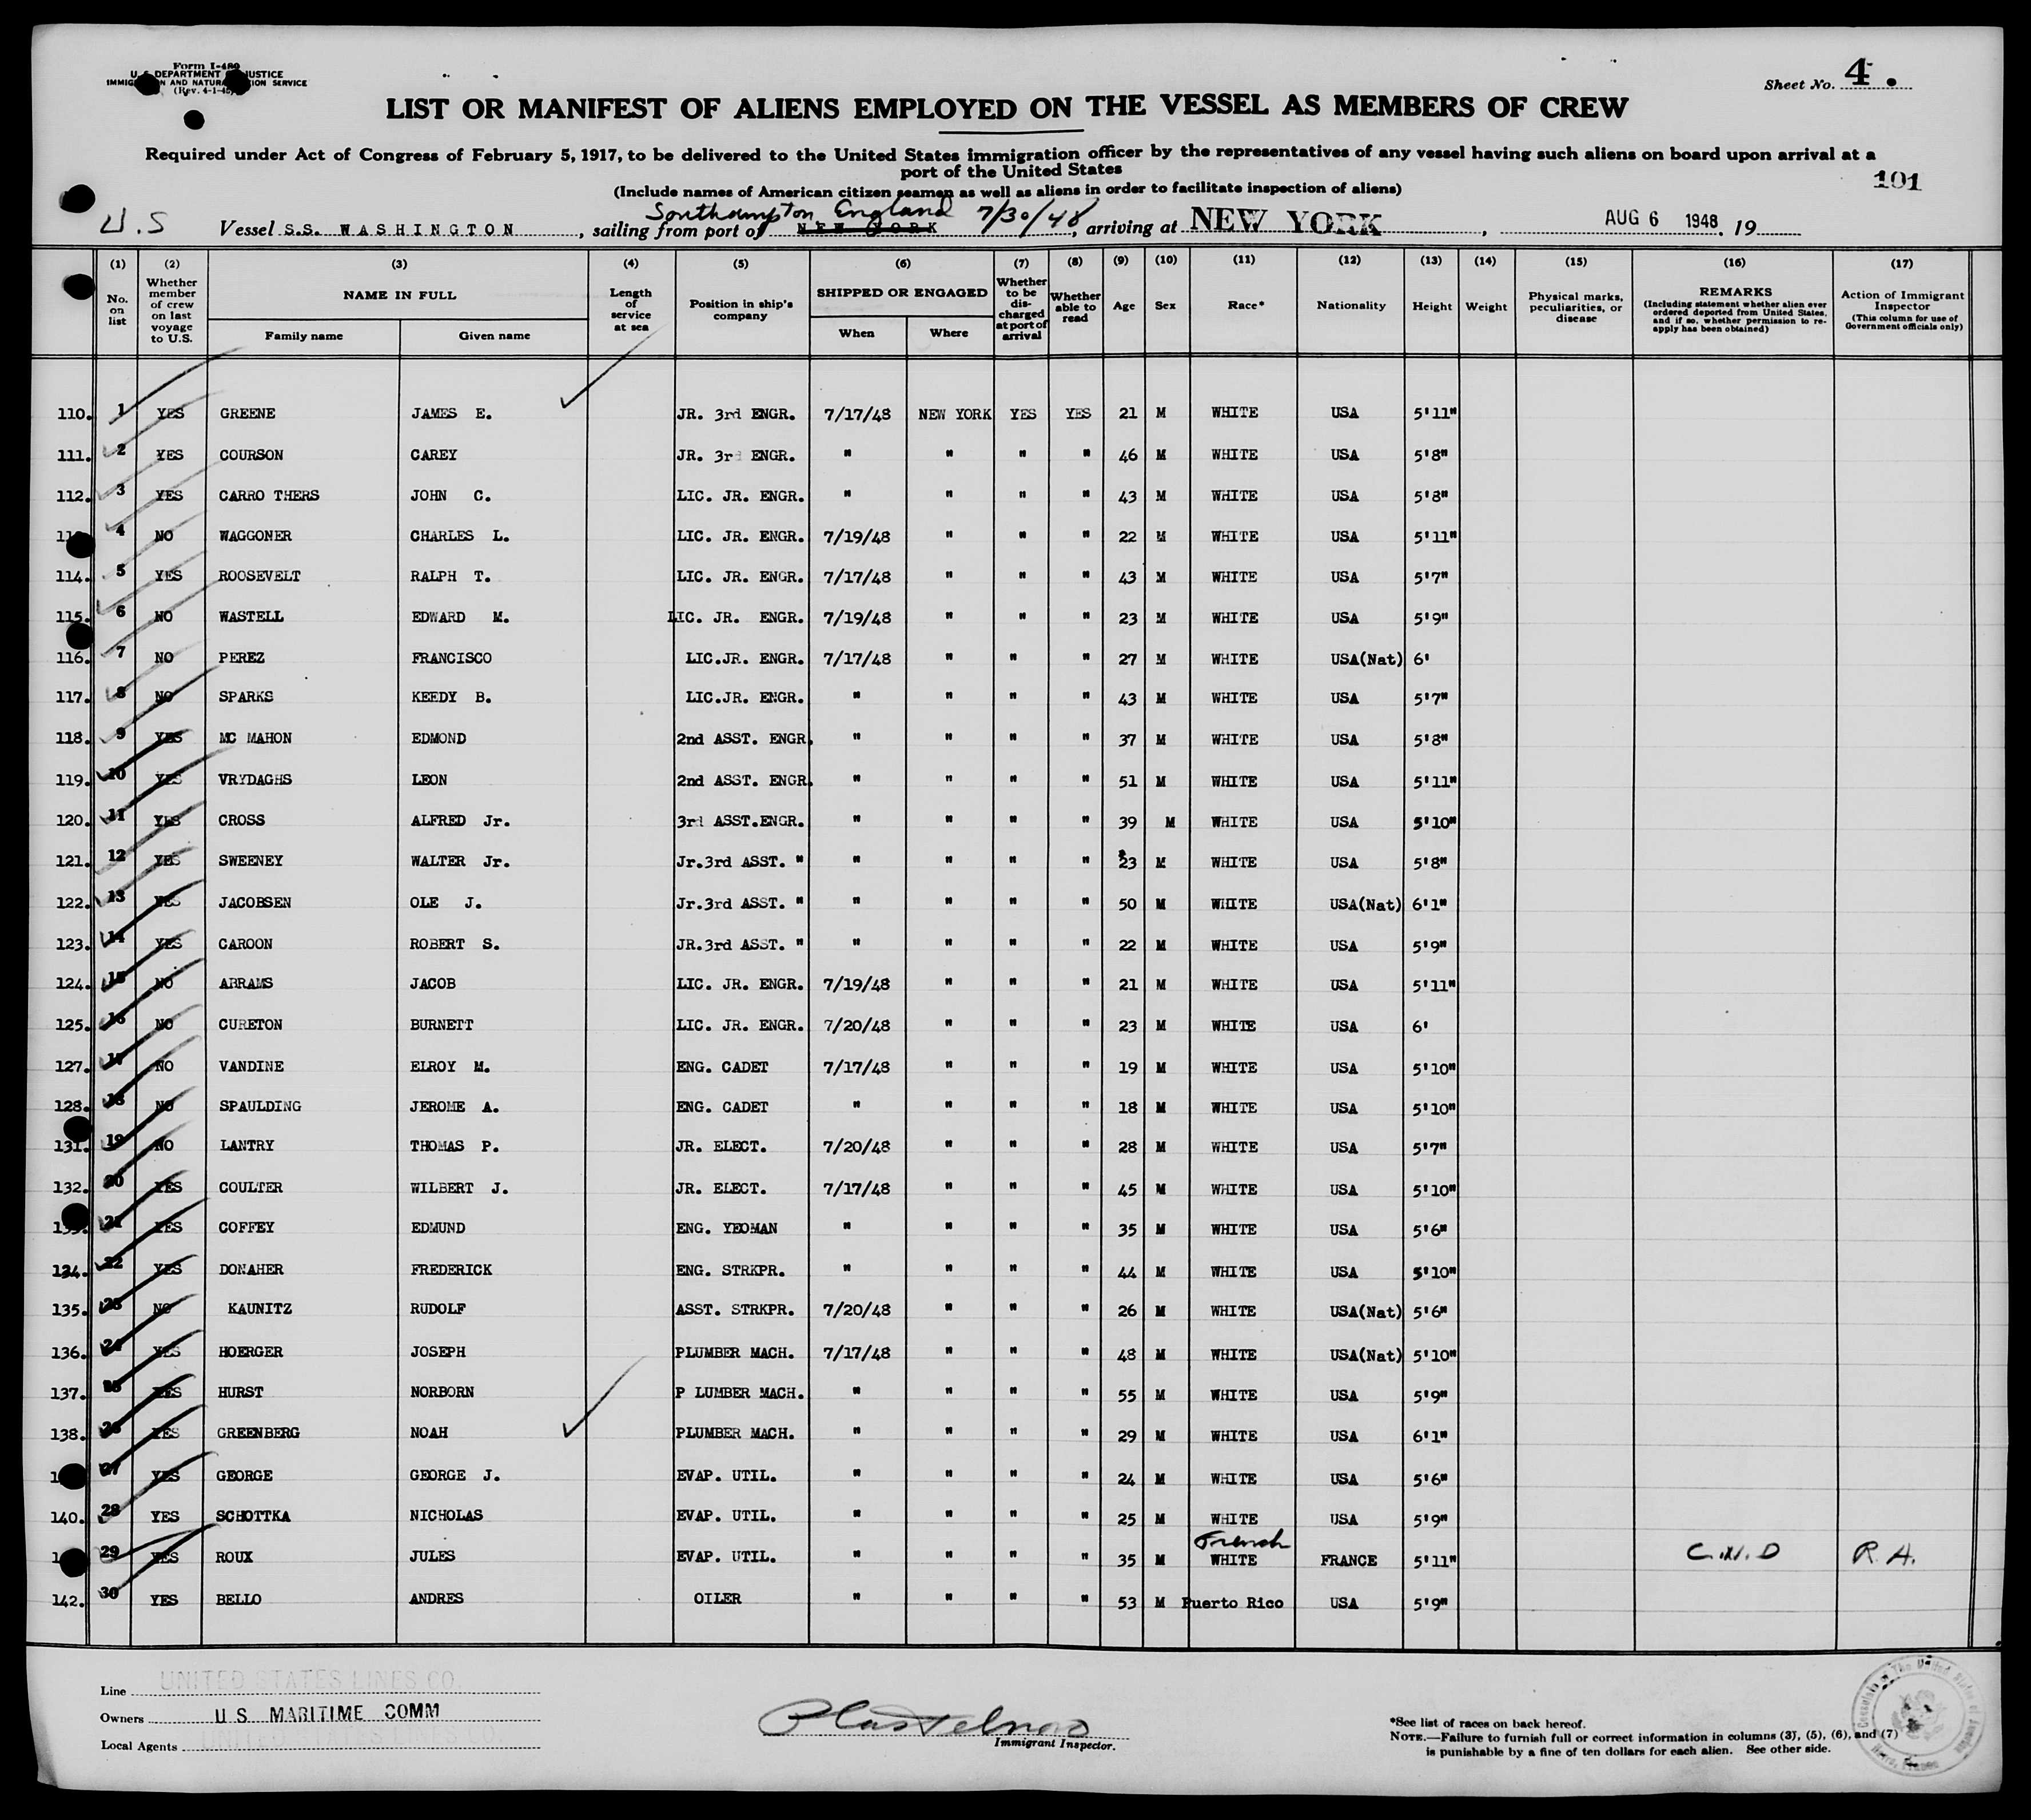 Form I-480
U. S. DEPARTMENT OF JUSTICE
IMMIGRATION AND NATURALIZATION SERVICE
(Rev. 4-1-45)
Sheet No. 4.
LIST OR MANIFEST OF ALIENS EMPLOYED ON THE VESSEL AS MEMBERS OF CREW
Required under Act of Congress of February 5, 1917, to be delivered to the United States immigration officer by the representatives of any vessel having such aliens on board upon arrival at a
port of the United States
(Include names of American citizen seamen as well as aliens in order to facilitate inspection of aliens)
101
Southampton England 7/30/48
U.S Vessel S.S. WASHINGTON, sailing from port of NEW YORK, arriving at NEW YORK, AUG 6 1948, 19
(1) (2) (3) (4) (5) (6) (7) (8) (9) (10) (11) (12) (13) (14) (15) (16) (17)
No. on list
Whether member of crew on last voyage to U.S.
NAME IN FULL
Family name Given name
Length of service at sea
Position in ship's company
SHIPPED OR ENGAGED
When Where
Whether to be discharged at port of arrival
Whether able to read
Age
Sex
Race*
Nationality
Height
Weight
Physical marks, peculiarities, or disease
REMARKS
(Including statement whether alien ever ordered deported from United States, and if so, whether permission to reapply has been obtained)
Action of Immigrant Inspector
(This column for use of Government officials only)
110. 1 YES GREENE JAMES E. JR. 3rd ENGR. 7/17/48 NEW YORK YES YES 21 M WHITE USA 5'11"
111. 2 YES COURSON CAREY JR. 3rd ENGR. " " " " 46 M WHITE USA 5'8"
112. 3 YES CARRO THERS JOHN C. LIC. JR. ENGR. " " " " 43 M WHITE USA 5'8"
4 NO WAGGONER CHARLES L. LIC. JR. ENGR. 7/19/48 " " " 22 M WHITE USA 5'11"
114. 5 YES ROOSEVELT RALPH T. LIC. JR. ENGR. 7/17/48 " " " 43 M WHITE USA 5'7"
115. 6 NO WASTELL EDWARD M. LIC. JR. ENGR. 7/19/48 " " " 23 M WHITE USA 5'9"
116. 7 NO PEREZ FRANCISCO LIC.JR. ENGR. 7/17/48 " " " 27 M WHITE USA(Nat) 6'
117. 8 NO SPARKS KEEDY B. LIC.JR. ENGR. " " " " 43 M WHITE USA 5'7"
118. 9 YES MC MAHON EDMOND 2nd ASST. ENGR. " " " " 37 M WHITE USA 5'8"
119. 10 YES VRYDAGHS LEON 2nd ASST. ENGR. " " " " 51 M WHITE USA 5'11"
120. 11 YES CROSS ALFRED Jr. 3rd ASST.ENGR. " " " " 39 M WHITE USA 5'10"
121. 12 YES SWEENEY WALTER Jr. Jr.3rd ASST. " " " " " 23 M WHITE USA 5'8"
122. 13 YES JACOBSEN OLE J. Jr.3rd ASST. " " " " " 50 M WHITE USA(Nat) 6'1"
123. 14 YES CAROON ROBERT S. JR.3rd ASST. " " " " " 22 M WHITE USA 5'9"
124. 15 NO ABRAMS JACOB LIC. JR. ENGR. 7/19/48 " " " 21 M WHITE USA 5'11"
125. 16 NO CURETON BURNETT LIC. JR. ENGR. 7/20/48 " " " 23 M WHITE USA 6'
127. 17 NO VANDINE ELROY M. ENG. CADET 7/17/48 " " " 19 M WHITE USA 5'10"
128. 18 NO SPAULDING JEROME A. ENG. CADET " " " " 18 M WHITE USA 5'10"
131. 19 NO LANTRY THOMAS P. JR. ELECT. 7/20/48 " " " 28 M WHITE USA 5'7"
132. 20 YES COULTER WILBERT J. JR. ELECT. 7/17/48 " " " 45 M WHITE USA 5'10"
133. 21 YES COFFEY EDMUND ENG. YEOMAN " " " " 35 M WHITE USA 5'6"
134. 22 YES DONAHER FREDERICK ENG. STRKPR. " " " " 44 M WHITE USA 5'10"
135. 23 NO KAUNITZ RUDOLF ASST. STRKPR. 7/20/48 " " " 26 M WHITE USA(Nat) 5'6"
136. 24 YES HOERGER JOSEPH PLUMBER MACH. 7/17/48 " " " 48 M WHITE USA(Nat) 5'10"
137. 25 YES HURST NORBORN P LUMBER MACH. " " " " 55 M WHITE USA 5'9"
138. 26 YES GREENBERG NOAH PLUMBER MACH. " " " " 29 M WHITE USA 6'1"
27 YES GEORGE GEORGE J. EVAP. UTIL. " " " " 24 M WHITE USA 5'6"
140. 28 YES SCHOTTKA NICHOLAS EVAP. UTIL. " " " " 25 M WHITE USA 5'9"
French
29 YES ROUX JULES EVAP. UTIL. " " " " 35 M WHITE FRANCE 5'11" R.A.
142. 30 YES BELLO ANDRES OILER " " " " 53 M Puerto Rico USA 5'9"
Line UNITED STATES LINES CO.
Owners U S MARITIME COMM
Local Agents UNITED STATES LINES CO
Immigrant Inspector.
*See list of races on back hereof.
NOTE.—Failure to furnish full or correct information in columns (3), (5), (6), and (7)
is punishable by a fine of ten dollars for each alien. See other side.